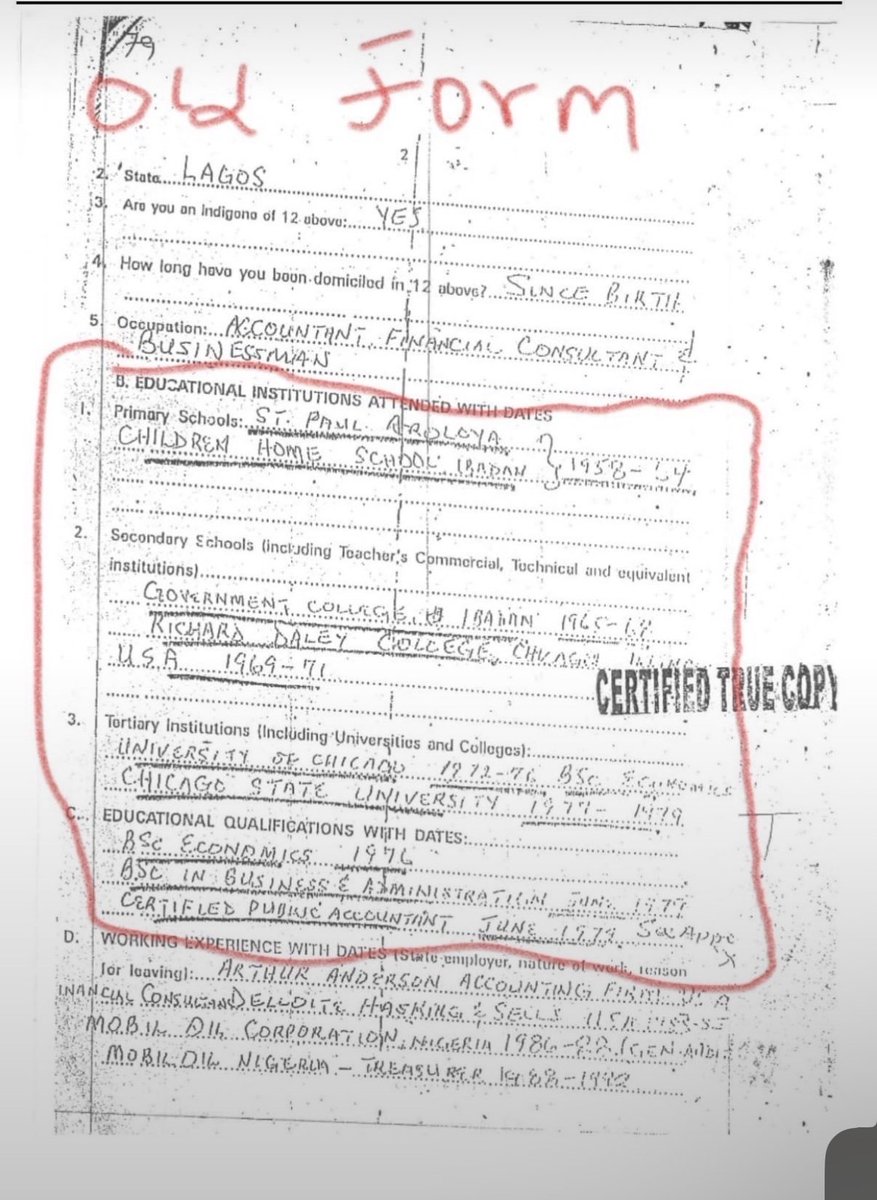 79
Old Form
2
2. State LAGOS
3. Are you an Indigene of 12 above: YES
4. How long have you been domiciled in 12 above? SINCE BIRTH
5. Occupation: ACCOUNTANT, FINANCIAL CONSULTANT &
BUSINESSMAN
B. EDUCATIONAL INSTITUTIONS ATTENDED WITH DATES
1. Primary Schools: ST. PAUL AROLOYA
CHILDREN HOME SCHOOL, IBADAN } 1958-64
2. Secondary Schools (including Teacher's Commercial, Technical and equivalent
institutions)
GOVERNMENT COLLEGE, IBADAN 1965-68
RICHARD DALEY COLLEGE, CHICAGO
U.S.A 1969-71
CERTIFIED TRUE COPY
3. Tertiary Institutions (Including Universities and Colleges):
UNIVERSITY OF CHICAGO 1972-76 BSC ECONOMICS
CHICAGO STATE UNIVERSITY 1977-1979
C. EDUCATIONAL QUALIFICATIONS WITH DATES:
BSC ECONOMICS 1976
BSC IN BUSINESS & ADMINISTRATION JUNE 1979
CERTIFIED PUBLIC ACCOUNTANT JUNE 1979
D. WORKING EXPERIENCE WITH DATES (State employer, nature of work, reason
for leaving): ARTHUR ANDERSON ACCOUNTING FIRM
INANCIAL CONSULTANT DELLOITE HASKING & SELLS USA 1983-85
MOBIL OIL CORPORATION, NIGERIA 1986-88
MOBIL OIL NIGERIA - TREASURER 1988-1992